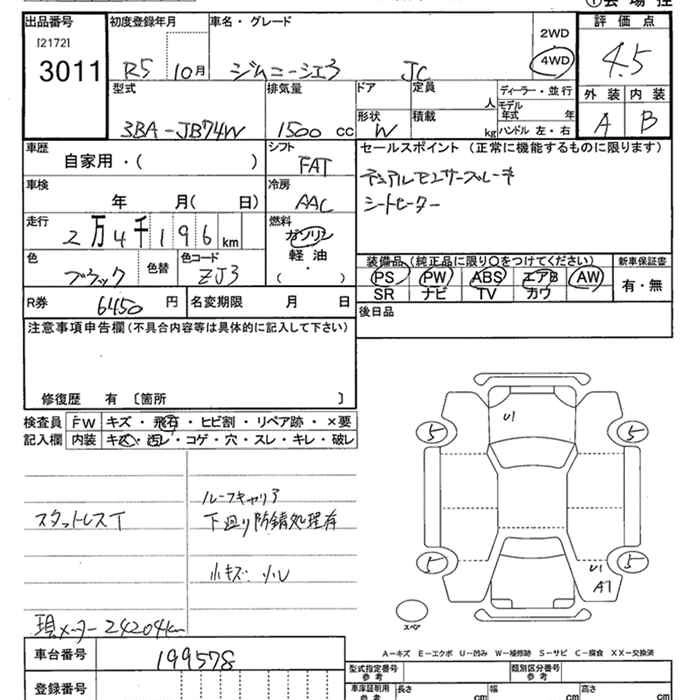 ①会場控
出品番号 初度登録年月 車名・グレード 評価点
[2172] 2WD
3011 R5 10月 ジムニーシエラ JC 4WD 4.5
型式 排気量 ドア 定員 人 ディーラー・並行 外装 内装
3BA-JB74W 1500cc 形状 W 積載 kg モデル年式 年 A B
ハンドル 左・右
車歴 シフト セールスポイント (正常に機能するものに限ります)
自家用・( ) FAT デュアルセンサーブレーキ
車検 冷房 シートヒーター
年 月( 日) AAC
走行 燃料
2万4千196km ガソリン
色 色替 色コード 軽油 装備品(純正品に限り○をつけてください) 新車保証書
ブラック ZJ3 ・( ) PS PW ABS エアB AW 有・無
SR ナビ TV カワ
R券 6450円 名変期限 月 日 後日品
注意事項申告欄(不具合内容等は具体的に記入して下さい)
修復歴 有 〔箇所 〕
検査員 FW キズ・飛石・ヒビ割・リペア跡・×要
記入欄 内装 キズ・汚レ・コゲ・穴・スレ・キレ・破レ
U1
5 5
ルーフキャリア
スタットレスT 下廻り防錆処理存
5 5
小キズ・凹 U1
A1
スペア
現メーター24204km
A-キズ E-エクボ U-凹み W-補修跡 S-サビ C-腐食 XX-交換済
車台番号 199578 型式指定番号 参考 類別区分番号 参考
登録番号 車庫証明用 参考 長さ cm 幅 cm 高さ cm